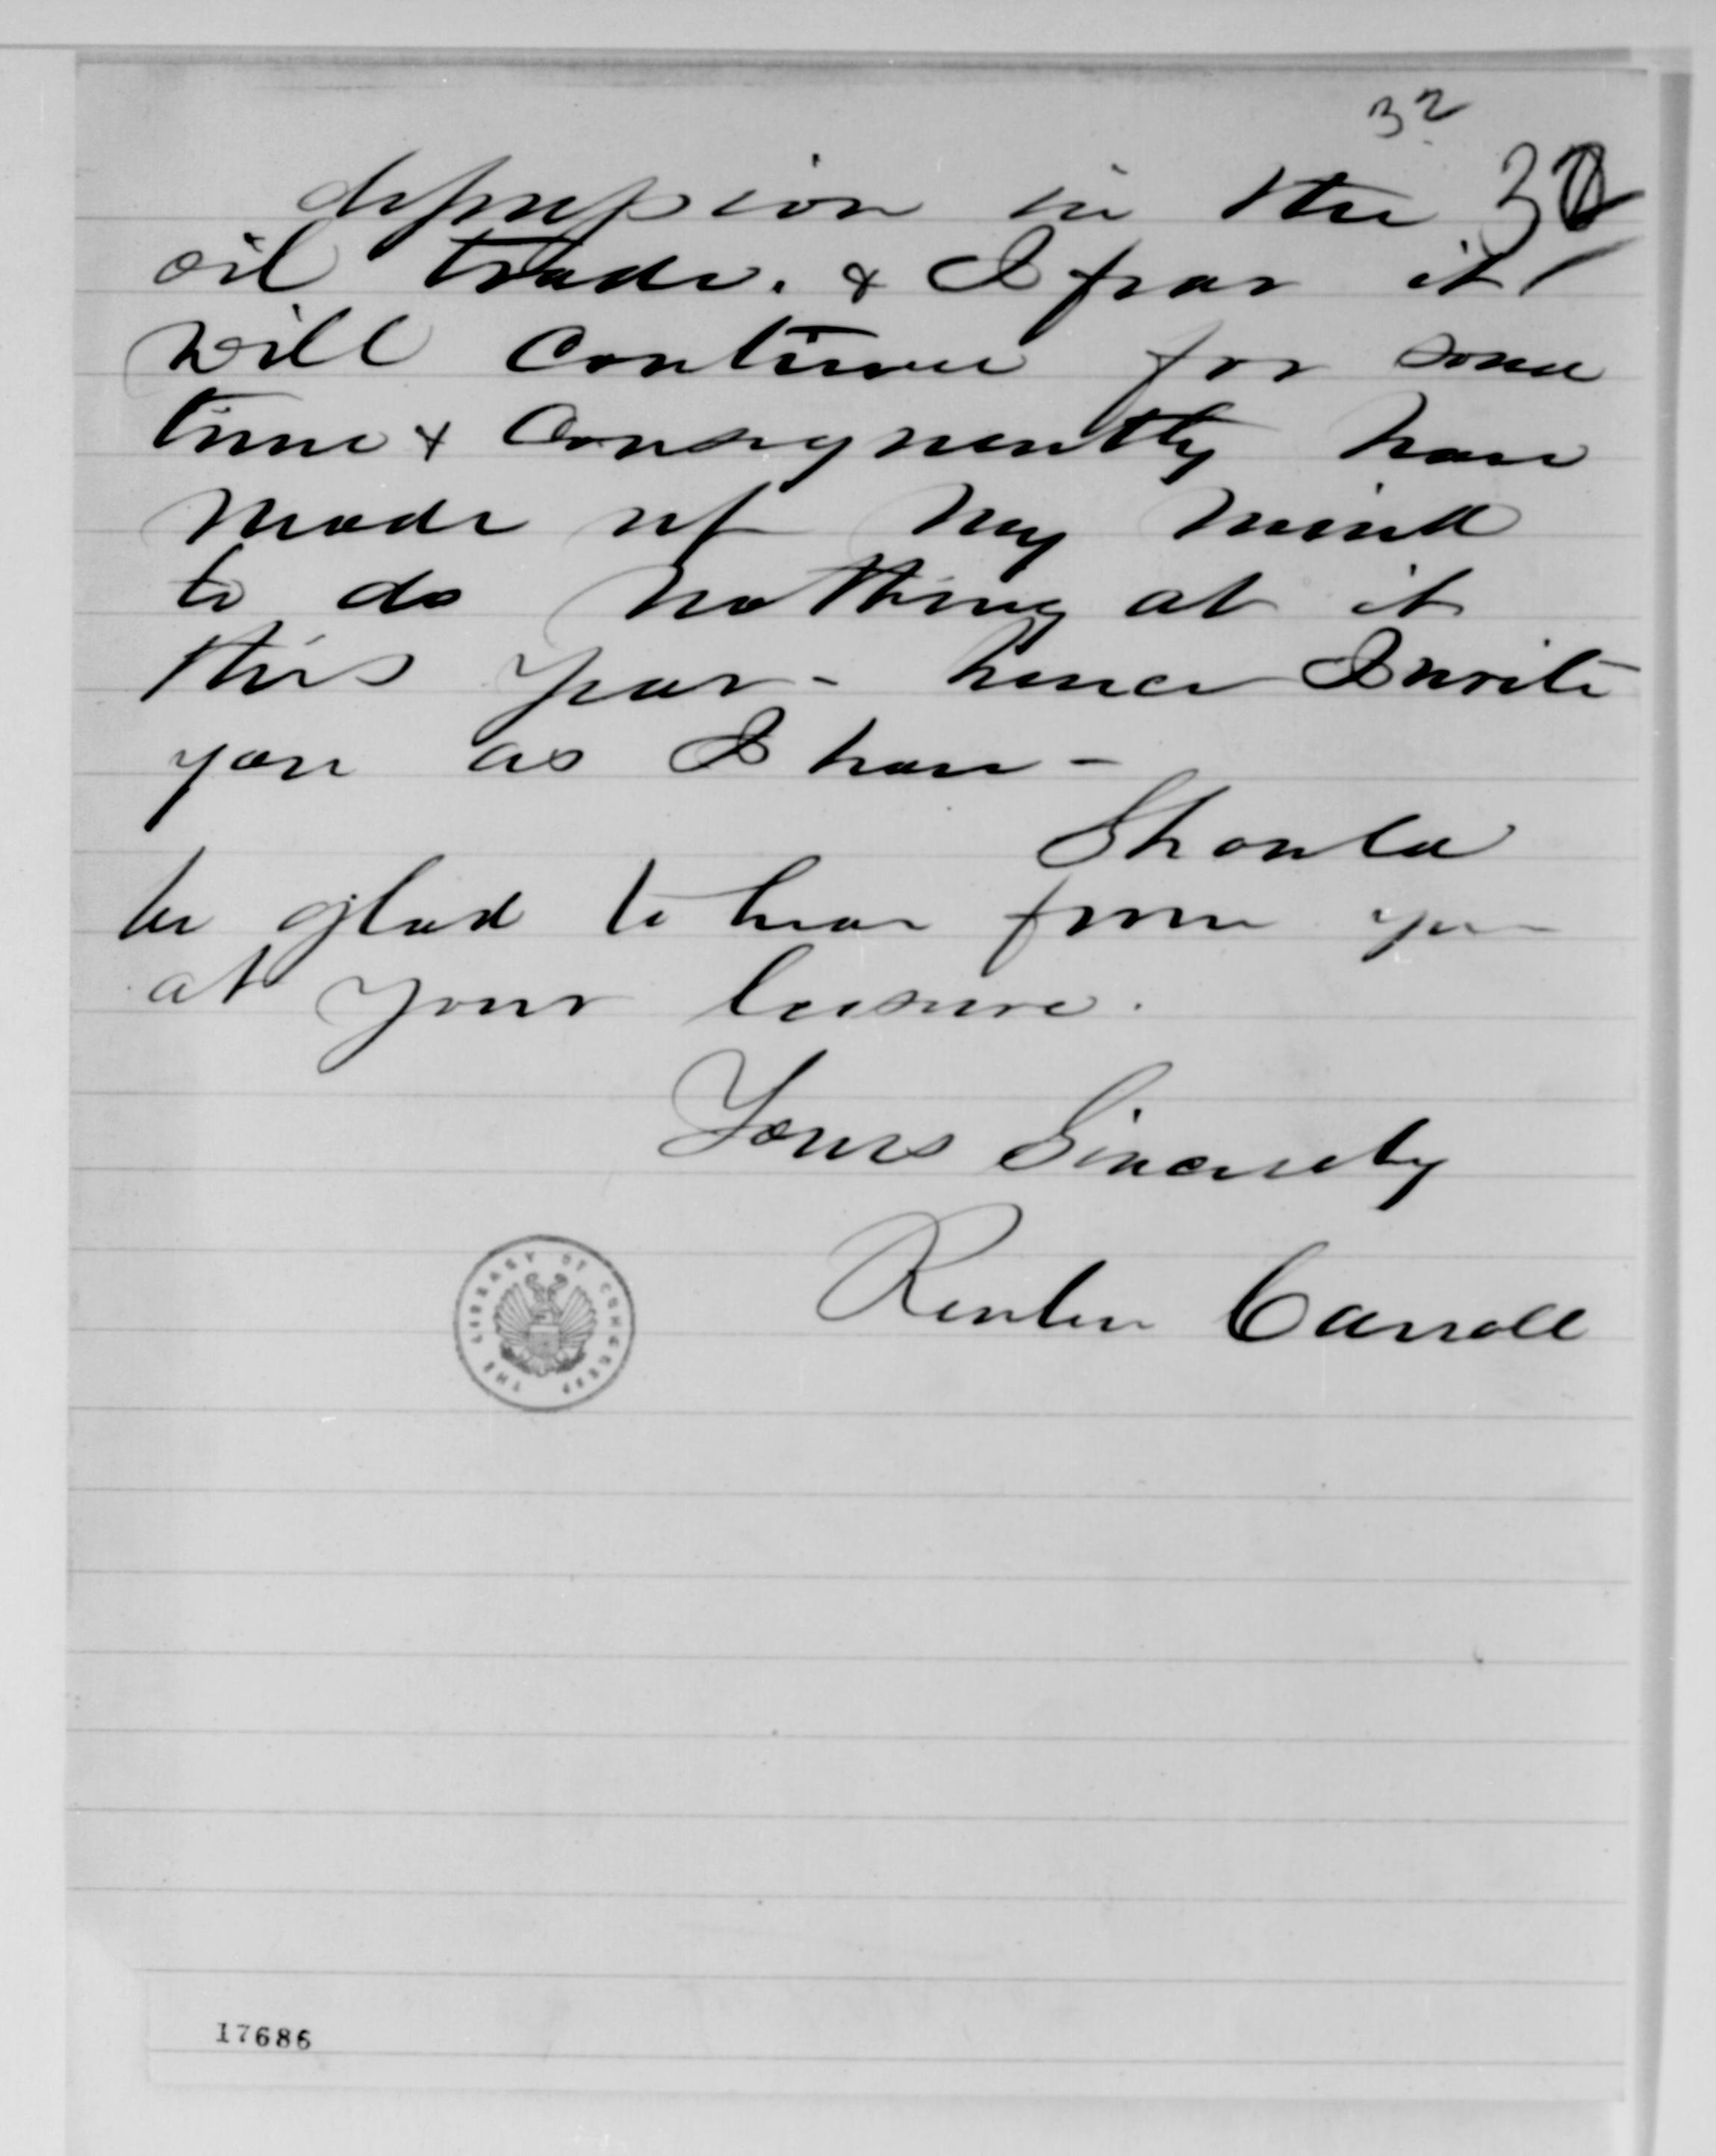 32
depression in the 32
oil trade. & I fear it
will continue for some
time & consequently have
made up my mind
to do nothing at it
this year - hence I write
you as I have -
Should
be glad to hear from you
at your leisure.
Yours Sincerely
Reuben Carroll
THE LIBRARY OF CONGRESS
17686